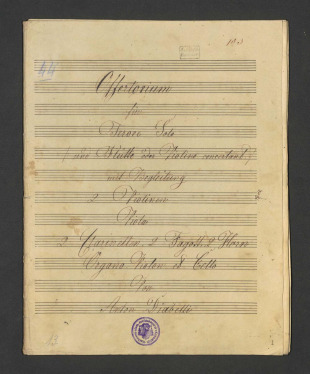 44
Offertorium
für
Tenor Solo
(und Flötte oder Violine concertant)
mit Begleitung
2 Violinen
Viola
2 Clarinetten, 2 Fagott, 2 Horn
Organo Violon & Cello
Von
Anton Diabelli